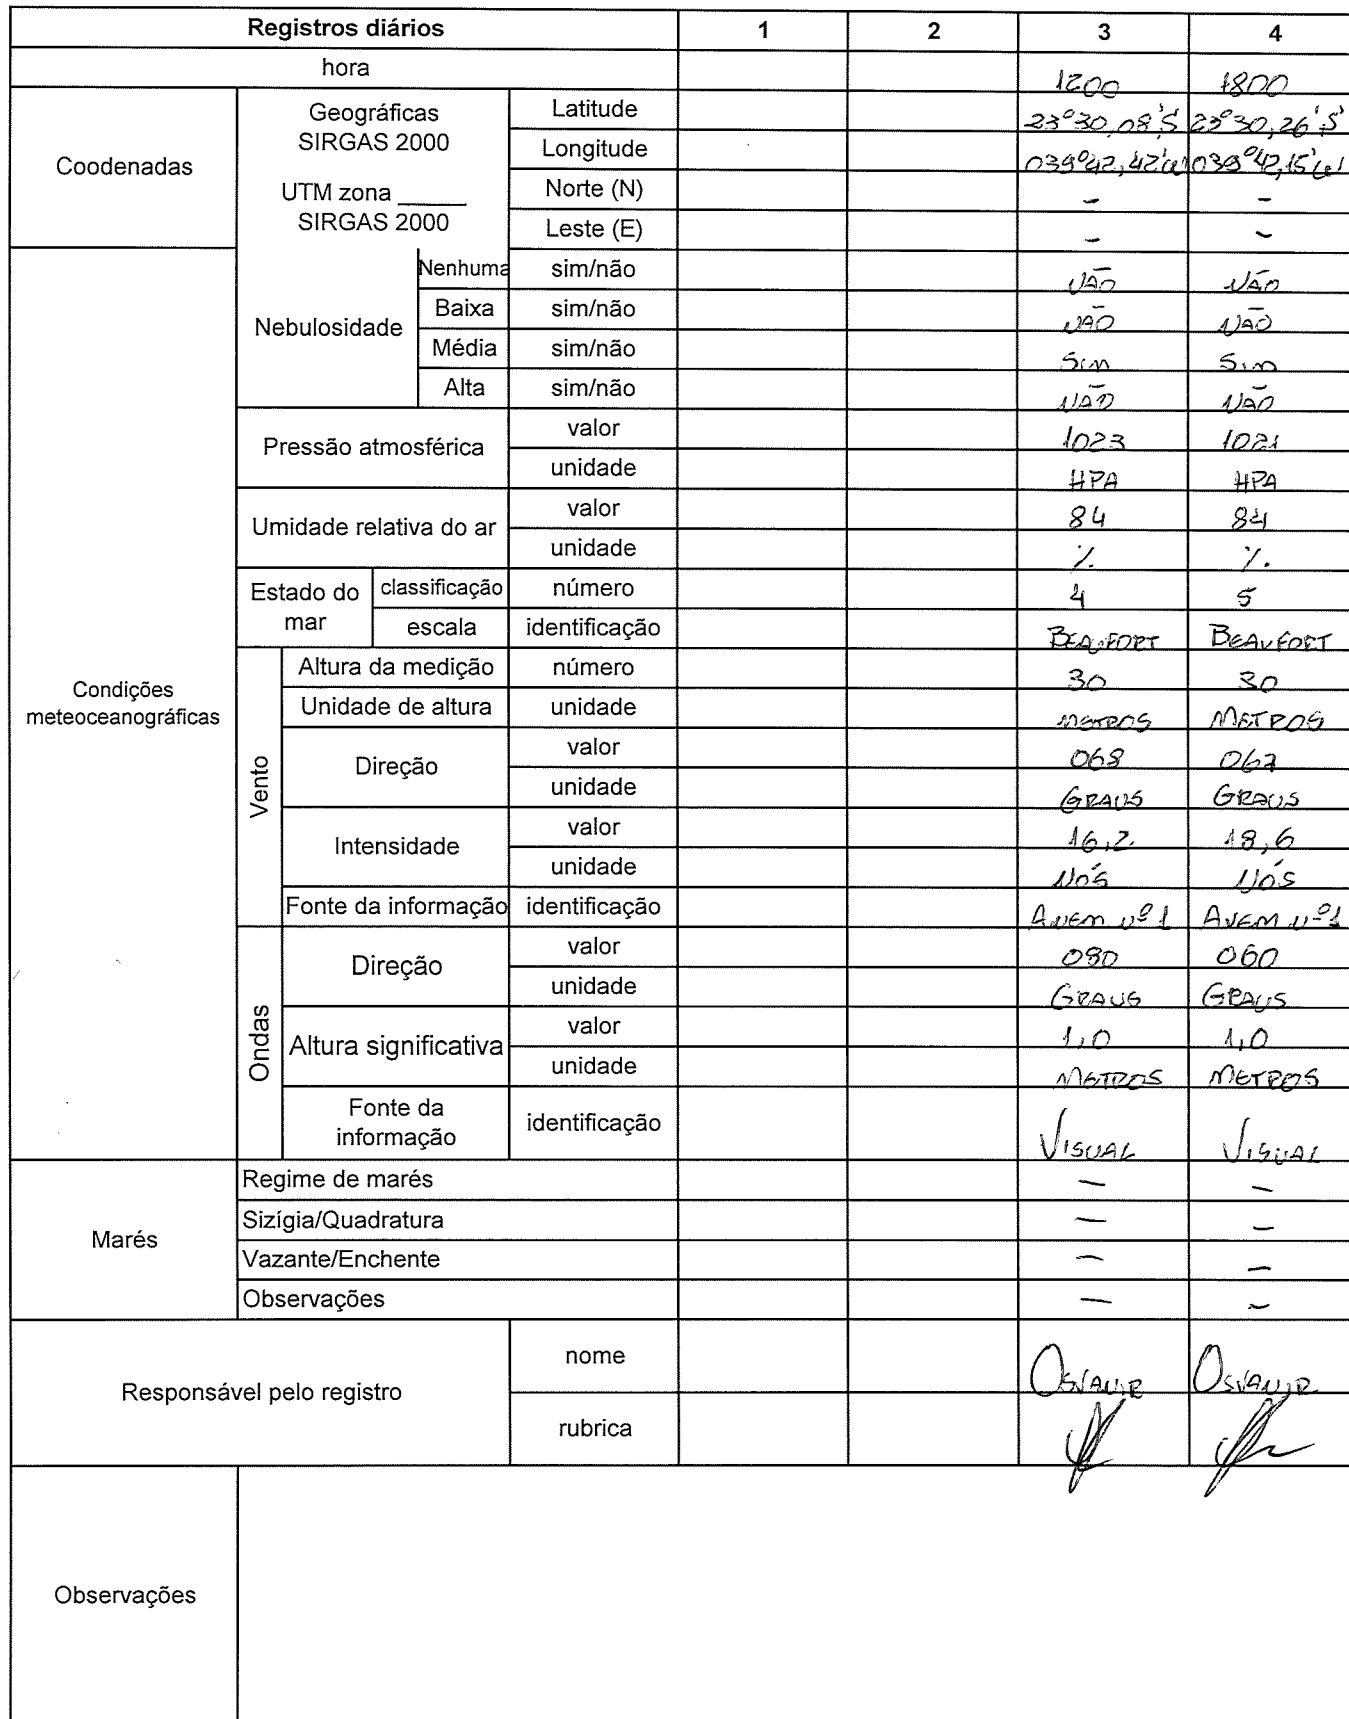 Registros diários 1 2 3 4
hora 1200 1800
Coodenadas
Geográficas
SIRGAS 2000
UTM zona _____
SIRGAS 2000
Latitude 23°30,08'S 23°30,26'S
Longitude 039°42,42'W 039°42,15'W
Norte (N) - -
Leste (E) - -
Condições
meteoceanográficas
Nebulosidade
Nenhuma sim/não NÃO NÃO
Baixa sim/não NÃO NÃO
Média sim/não Sim Sim
Alta sim/não NÃO NÃO
Pressão atmosférica
valor 1023 1021
unidade HPA HPA
Umidade relativa do ar
valor 84 84
unidade % %
Estado do
mar
classificação número 4 5
escala identificação BEAUFORT BEAUFORT
Vento
Altura da medição número 30 30
Unidade de altura unidade METROS METROS
Direção
valor 068 067
unidade GRAUS GRAUS
Intensidade
valor 16,2 18,6
unidade NÓS NÓS
Fonte da informação identificação ANEM Nº 1 ANEM Nº 1
Ondas
Direção
valor 060
unidade GRAUS GRAUS
Altura significativa
valor 1,0 1,0
unidade METROS METROS
Fonte da
informação
identificação VISUAL VISUAL
Marés
Regime de marés - -
Sizígia/Quadratura - -
Vazante/Enchente - -
Observações - -
Responsável pelo registro
nome OSVANIR OSVANIR
rubrica
Observações